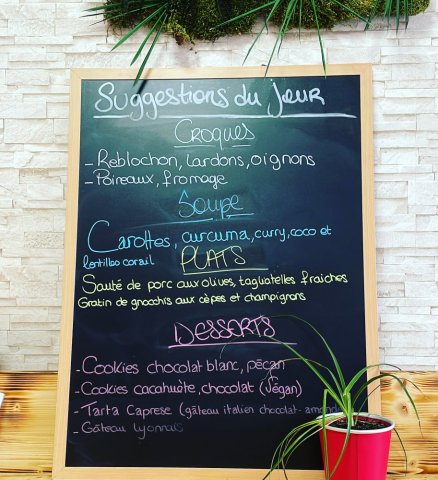 Suggestions du jour
Croques
- Reblochon, lardons, oignons
- Poireaux, fromage
Soupe
Carottes, curcuma, curry, coco et
lentilles corail
PLATS
Sauté de porc aux olives, tagliatelles fraîches
Gratin de gnocchis aux cèpes et champignons
DESSERTS
- Cookies chocolat blanc, pécan
- Cookies cacahuète, chocolat (Végan)
- Tarta Caprese (gâteau italien chocolat-amande
- Gâteau Lyonnais